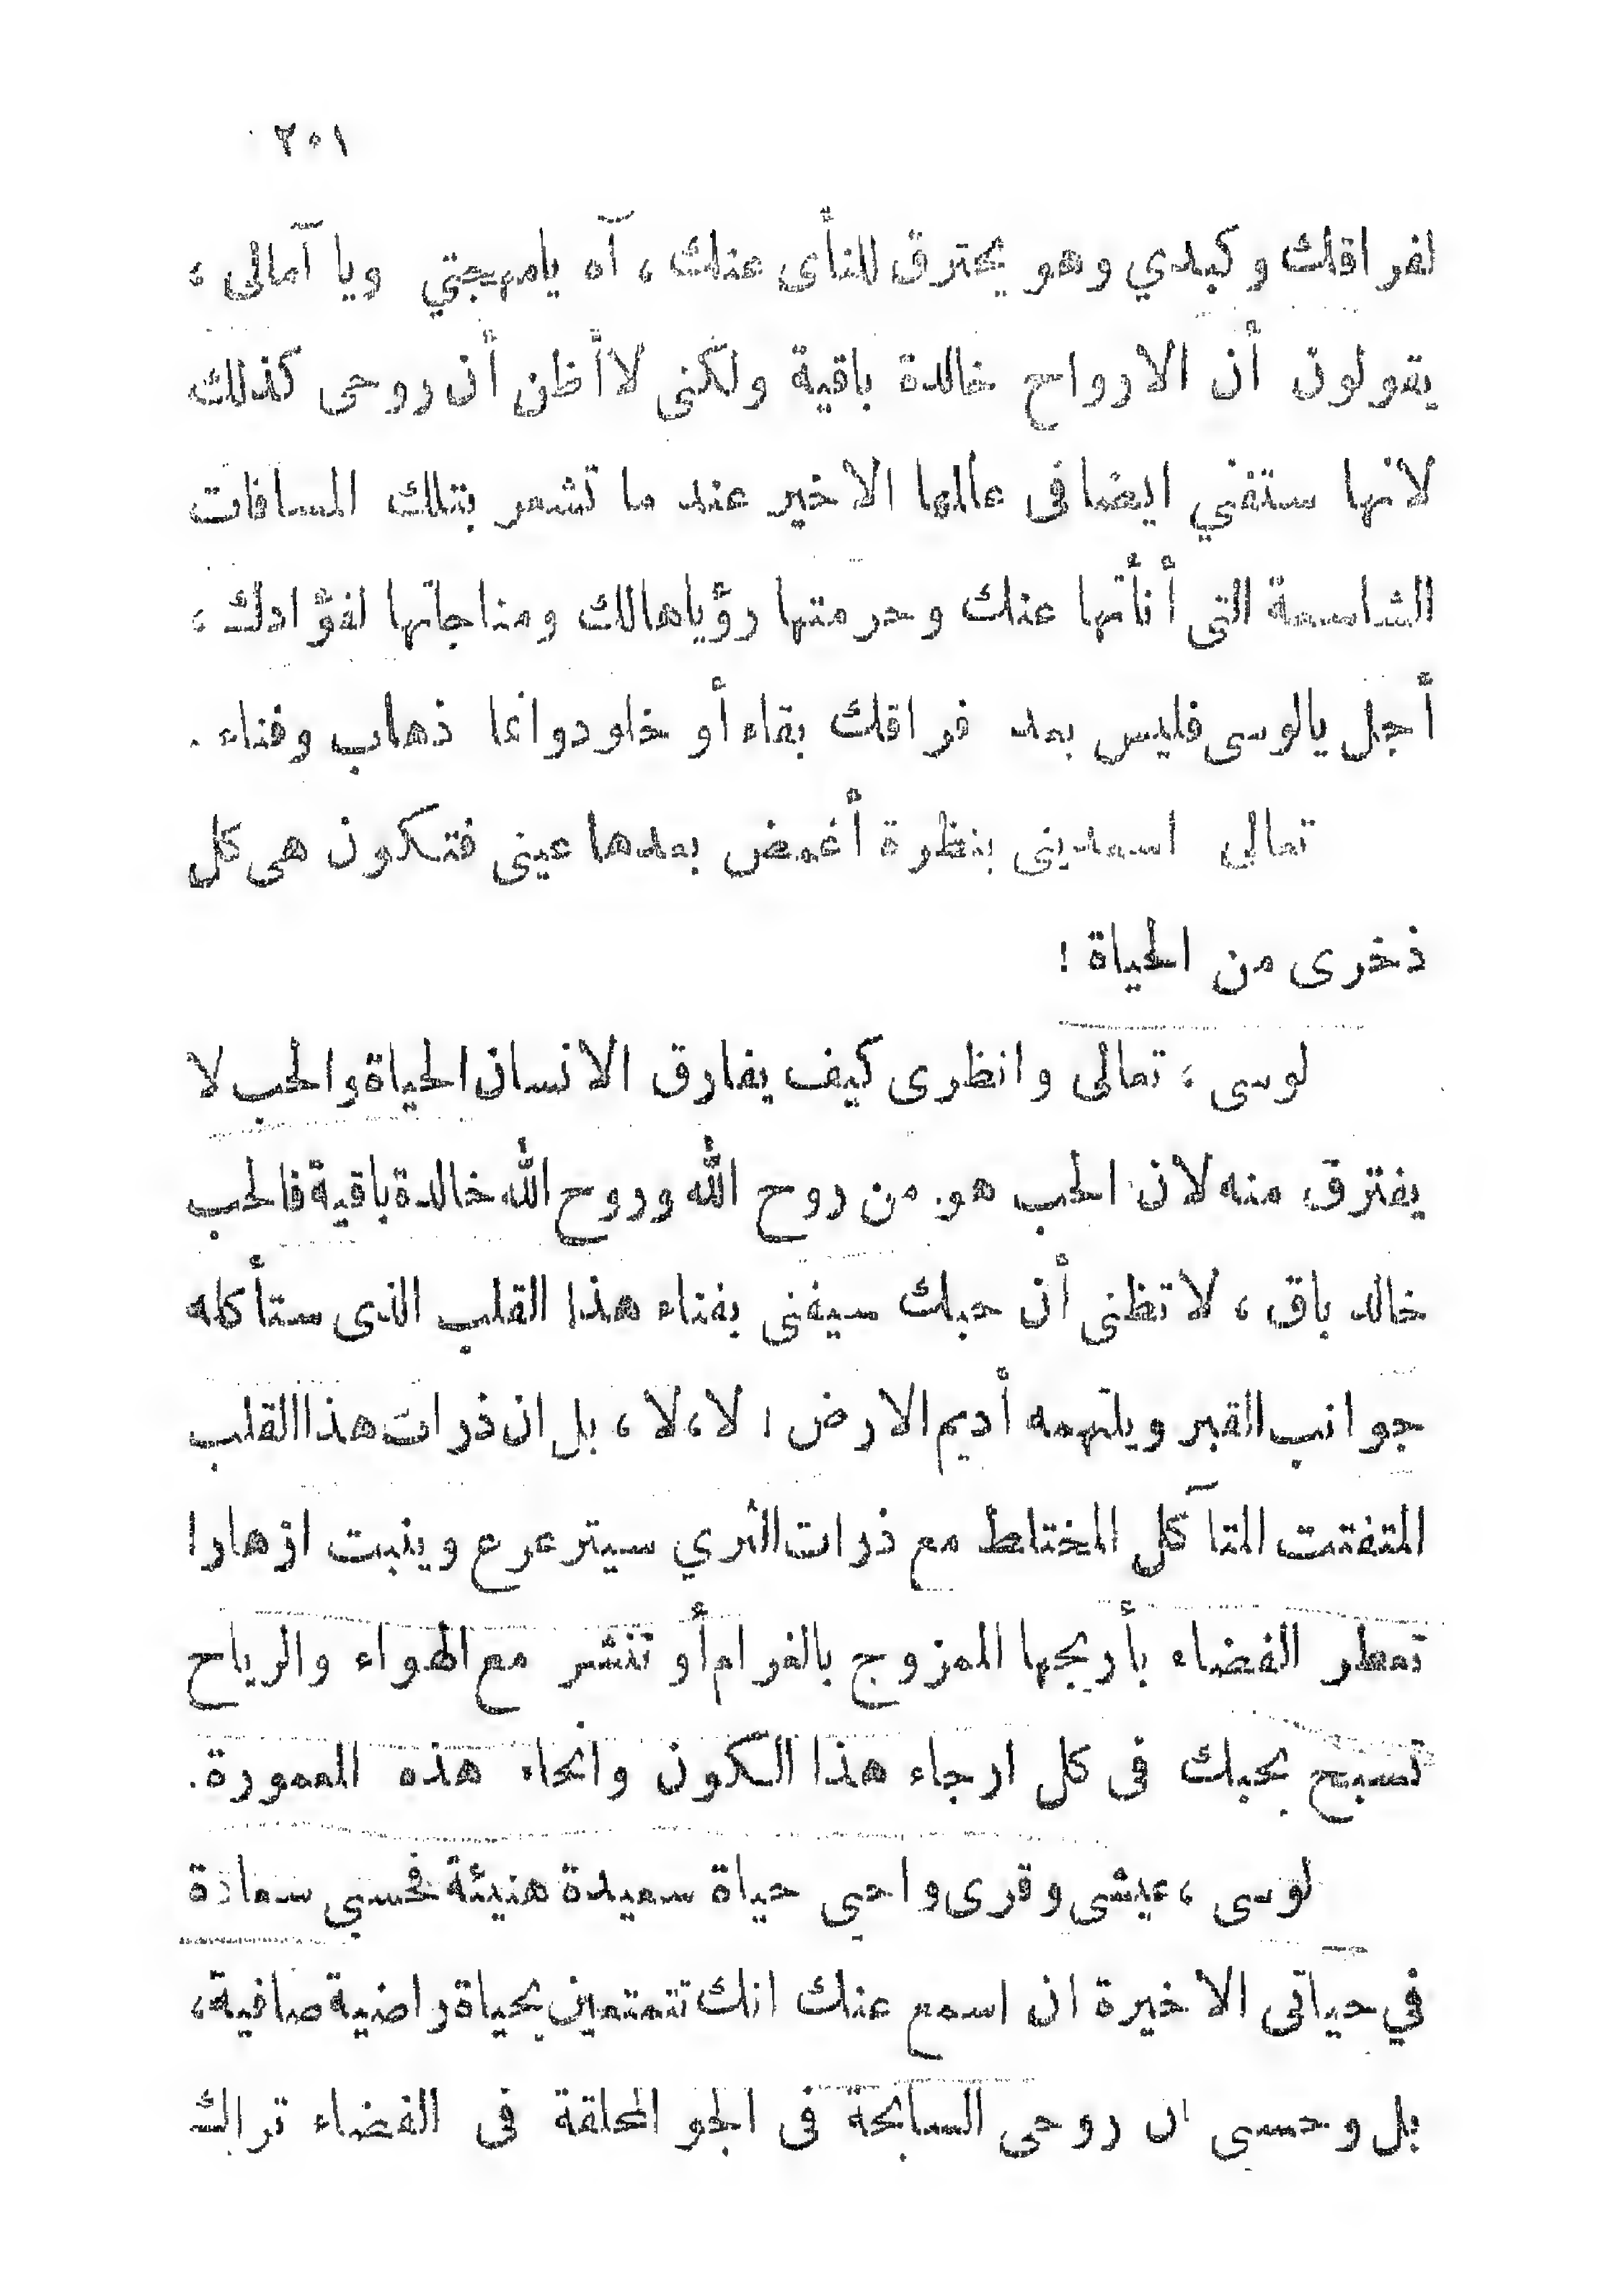 ٢٠١
لفراقك وكبدي وهو يحترق للنأى عنك ، آه يامهجتي ويا آمالى ،
يقولون أن الارواح خالدة باقية ولكنى لاأظن أن روحى كذلك
لانها ستفني ايضا فى عالمها الاخير عند ما تشعر بتلك المسافات
الشاسعة التى أنأتها عنك وحرمتها رؤياهالك ومناجاتها لفؤادك ،
أجل يالوسى فليس بعد فراقك بقاء أو خلود وانما ذهاب وفناء .
تعالى اسعدينى بنظرة أغمض بعدها عينى فتكون هى كل
ذخرى من الحياة !
لوسى ، تعالى وانظرى كيف يفارق الانسان الحياة والحب لا
يفترق منه لان الحب هو من روح الله وروح الله خالدة باقية فالحب
خالد باق ، لا تظنى أن حبك سيفنى بفناء هذا القلب الذى ستأكله
جوانب القبر ويلتهمه أديم الارض ، لا ، لا ، بل ان ذرات هذا القلب
المتفتت المتآكل المختلط مع ذرات الثري سيترعرع وينبت ازهارا
تعطر الفضاء بأريجها الممزوج بالغرام أو تنشر مع الهواء والرياح
تسبح بحبك فى كل ارجاء هذا الكون وانحاء هذه المعمورة .
لوسى ، عيشى وقرى واحيى حياة سعيدة هنيئة فحسبي سعادة
في حياتى الاخيرة ان اسمع عنك انك تتمتعين بحياة راضية صافية ،
بل وحسبى ان روحى السابحة فى الجو المحلقة فى الفضاء تراك